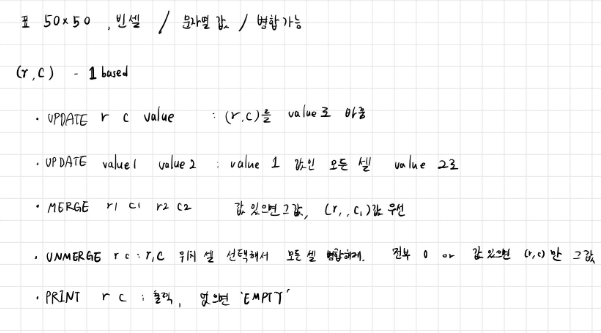 표 50×50 , 빈셀 / 문자열 값 / 병합 가능
(r,c) - 1 based
· UPDATE r c value : (r,c)를 value로 바꿈
· UPDATE value1 value2 : value 1 값인 모든 셀 value 2로
· MERGE r1 c1 r2 c2 값 있으면 그값, (r1, c1)값 우선
· UNMERGE r c : r,c 위치 셀 선택해서 모든 셀 병합해제. 전부 0 or 값 있으면 (r,c)만 그값
· PRINT r c : 출력, 없으면 'EMPTY'